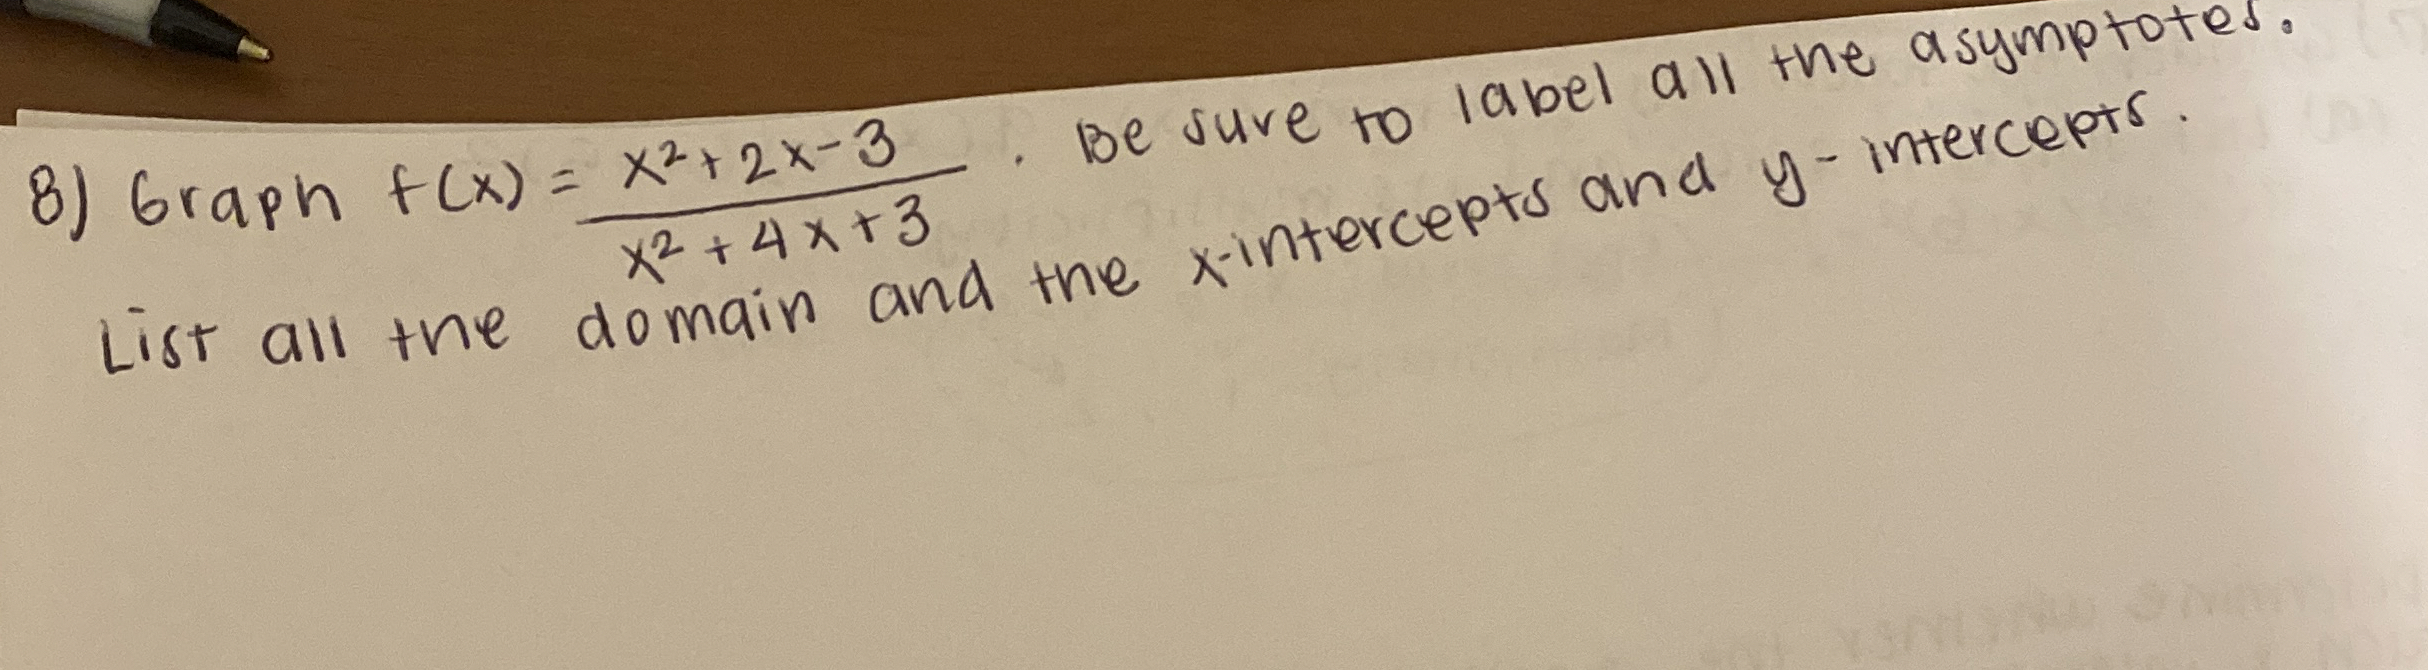 8) Graph f(x) = x²+2x-3 / x²+4x+3 . Be sure to label all the asymptotes.
List all the domain and the x-intercepts and y-intercepts.